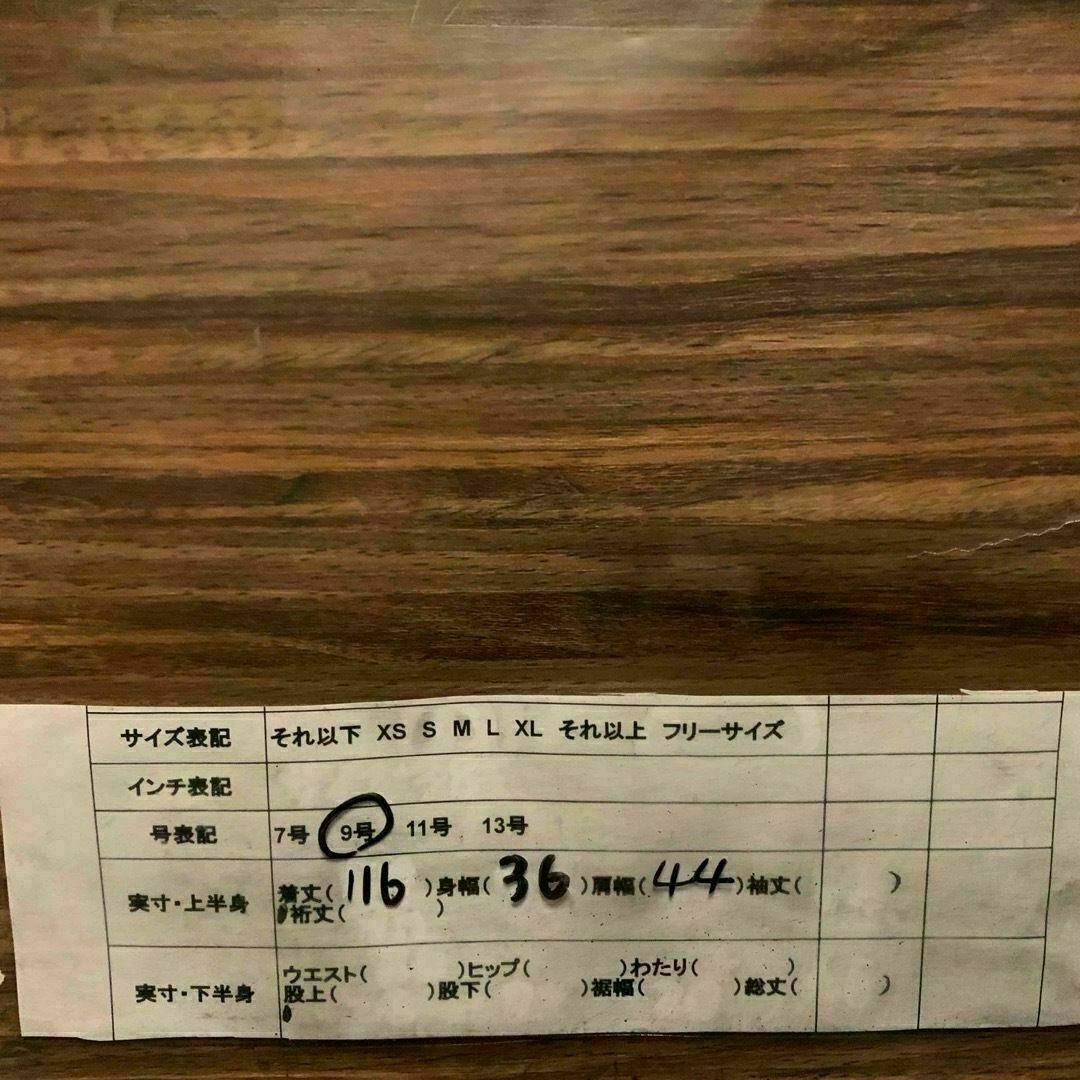 サイズ表記 それ以下 XS S M L XL それ以上 フリーサイズ
インチ表記
号表記 7号 9号 11号 13号
実寸・上半身 着丈( 116 )身幅( 36 )肩幅( 44 )袖丈( )
裄丈( )
実寸・下半身 ウエスト( )ヒップ( )わたり( )
股上( )股下( )裾幅( )総丈( )